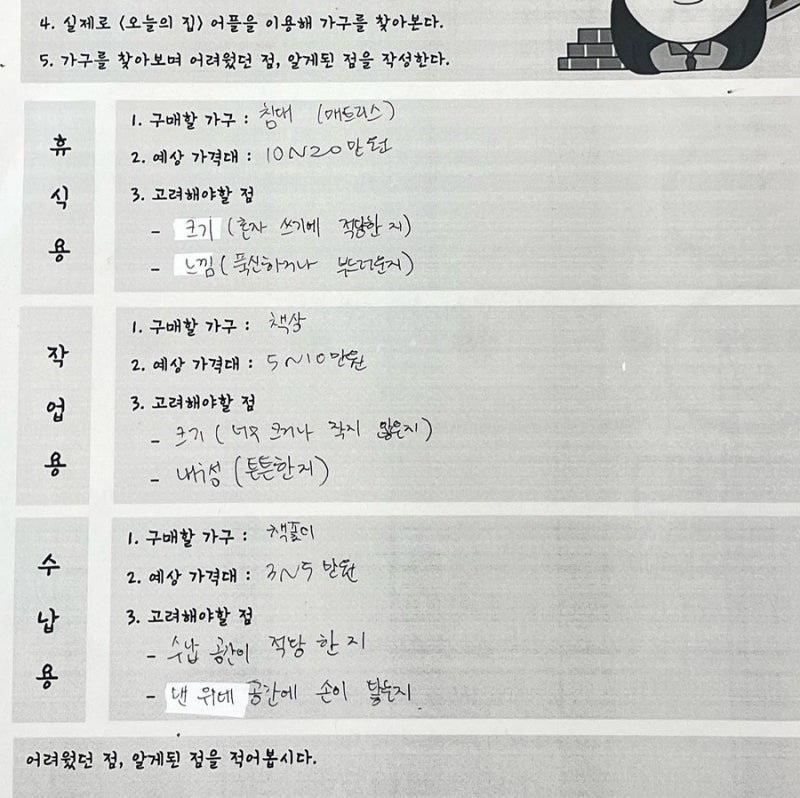 4. 실제로 <오늘의 집> 어플을 이용해 가구를 찾아본다.
5. 가구를 찾아보며 어려웠던 점, 알게된 점을 작성한다.
휴식용
1. 구매할 가구 : 침대 (매트리스)
2. 예상 가격대 : 10~20만원
3. 고려해야할 점
- 크기 (혼자 쓰기에 적당한 지)
- 느낌 (푹신하거나 부드러운지)
작업용
1. 구매할 가구 : 책상
2. 예상 가격대 : 5~10만원
3. 고려해야할 점
- 크기 (너무 크거나 작지 않은지)
- 내구성 (튼튼한지)
수납용
1. 구매할 가구 : 책꽂이
2. 예상 가격대 : 3~5만원
3. 고려해야할 점
- 수납 공간이 적당 한 지
- 맨 위에 공간에 손이 닿는지
어려웠던 점, 알게된 점을 적어봅시다.